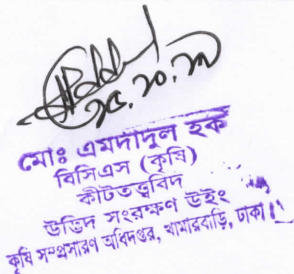 মোঃ এমদাদুল হক
বিসিএস (কৃষি)
কীটতত্ত্ববিদ
উদ্ভিদ সংরক্ষণ উইং
কৃষি সম্প্রসারণ অধিদপ্তর, খামারবাড়ি, ঢাকা।